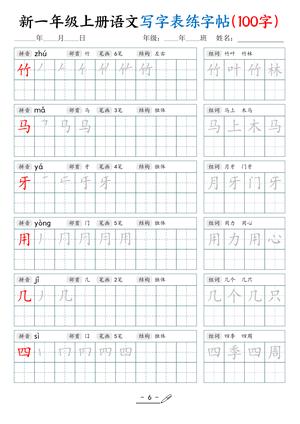 新一年级上册语文写字表练字帖(100字)
年 月 日 年级: 年 班 姓名:
拼音 zhú 部首 竹 笔画 6笔 结构 独体 组词 竹叶 竹林
竹 竹叶竹林
拼音 mǎ 部首 马 笔画 3笔 结构 独体 组词 马上 木马
马 马上木马
拼音 yá 部首 牙 笔画 4笔 结构 独体 组词 月牙 门牙
牙 月牙门牙
拼音 yòng 部首 门 笔画 5笔 结构 独体 组词 用力 用心
用 用力用心
拼音 jǐ 部首 几 笔画 2笔 结构 独体 组词 几个 几只
几 几个几只
拼音 sì 部首 囗 笔画 5笔 结构 独体 组词 四季 四周
四 四季四周
- 6 -